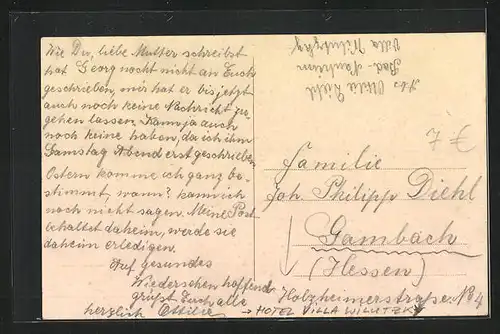 Wie Du, liebe Mutter schreibst
hat Georg nocht nicht an Euch
geschrieben, mir hat er bis jetzt
auch noch keine Nachricht zu-
gehen lassen. Kann ja auch
noch keine haben, da ich ihm
Samstag Abend erst geschrieben.
Ostern komme ich ganz be-
stimmt, wann? kann ich
noch nicht sagen. Meine Post
behaltet daheim, werde sie
daheim erledigen.
Auf gesundes
Wiedersehen hoffend
grüßt Euch alle
herzlich Ottilie
Abs. Ottilie Diehl
Bad-Nauheim
Villa Wilutzky
Familie
Joh. Philipp Diehl
Gambach
(Hessen)
Holzheimerstraße No 4
→ HOTEL VILLA WILUTZKY